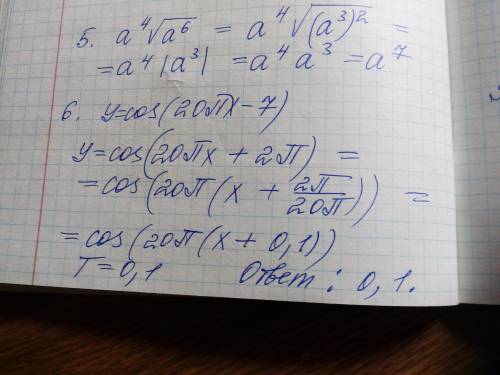 5. a⁴√a⁶ = a⁴√(a³)² =
= a⁴ |a³| = a⁴ a³ = a⁷
6. y=cos(20πx-7)
y=cos(20πx + 2π) =
= cos(20π(x + 2π/20π)) =
= cos(20π(x + 0,1))
T=0,1 Ответ: 0,1.